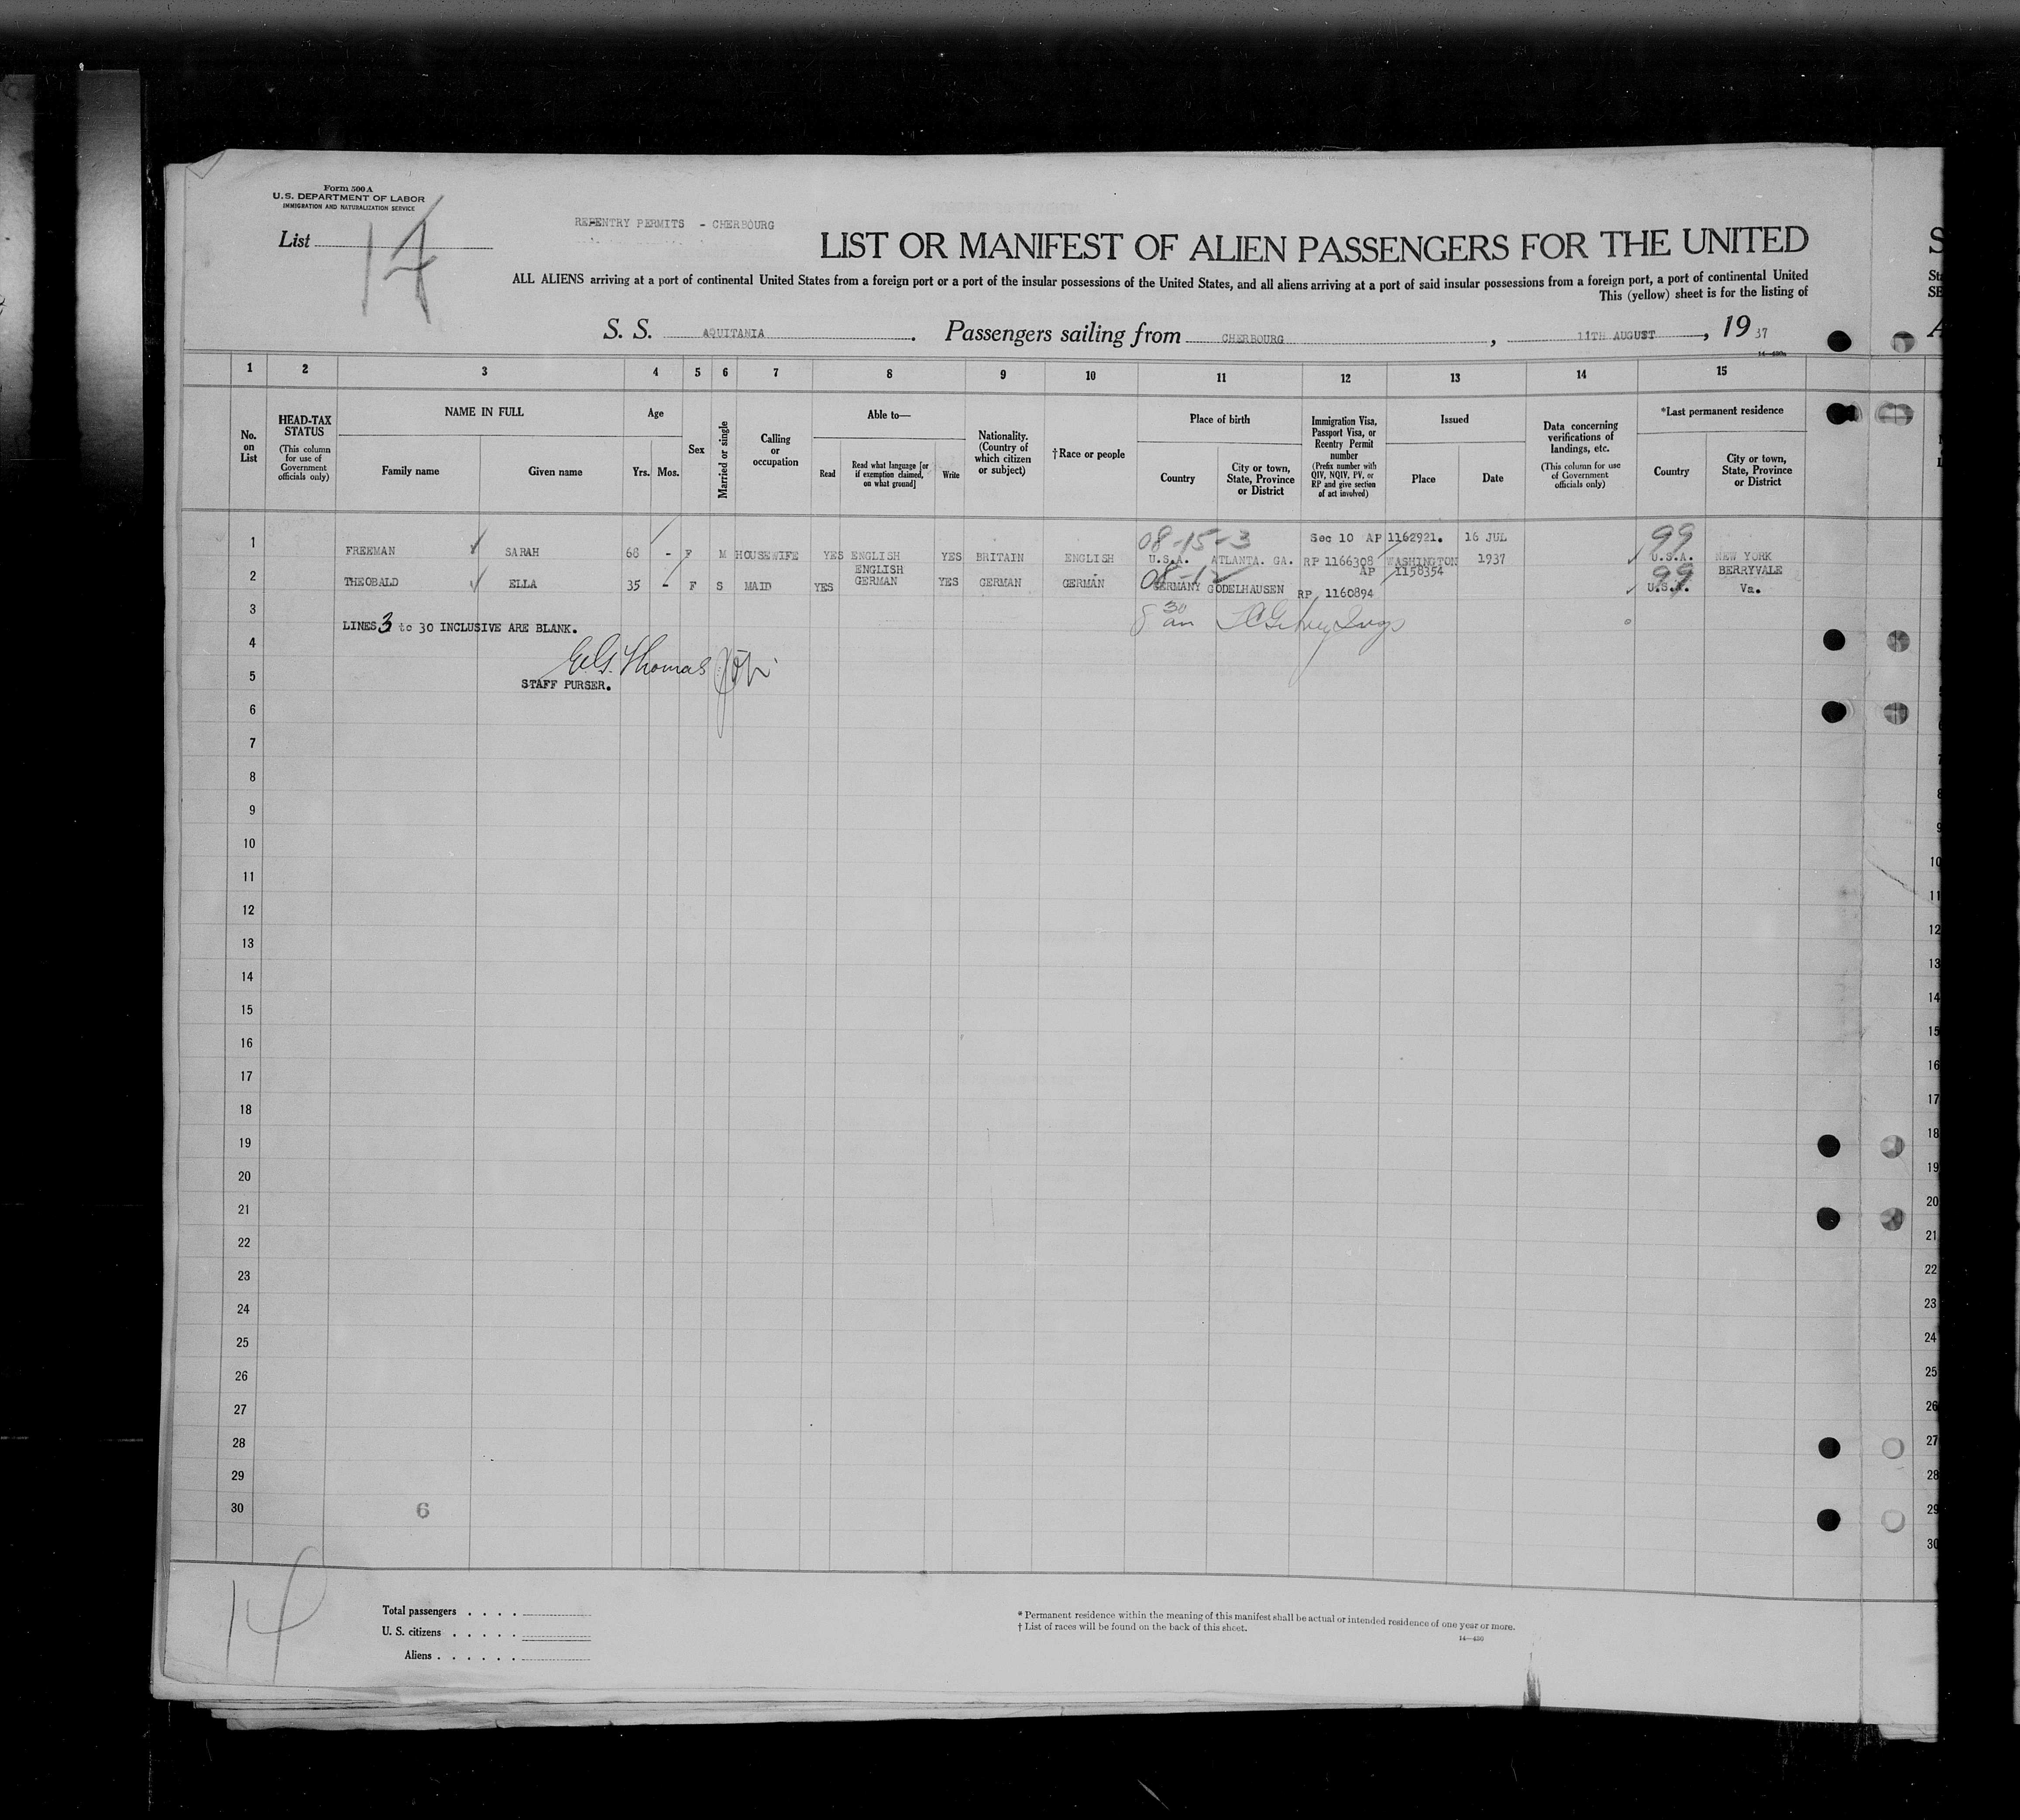 Form 500 A
U.S. DEPARTMENT OF LABOR
IMMIGRATION AND NATURALIZATION SERVICE
List 14
REENTRY PERMITS - CHERBOURG
LIST OR MANIFEST OF ALIEN PASSENGERS FOR THE UNITED
ALL ALIENS arriving at a port of continental United States from a foreign port or a port of the insular possessions of the United States, and all aliens arriving at a port of said insular possessions from a foreign port, a port of continental United
This (yellow) sheet is for the listing of
S. S. AQUITANIA. Passengers sailing from CHERBOURG, 11TH AUGUST, 1937
14—430a
1 2 3 4 5 6 7 8 9 10 11 12 13 14 15
No. on List
HEAD-TAX STATUS
(This column for use of Government officials only)
NAME IN FULL
Family name
Given name
Age
Yrs. Mos.
Sex
Married or single
Calling or occupation
Able to—
Read
Read what language [or if exemption claimed, on what ground]
Write
Nationality. (Country of which citizen or subject)
†Race or people
Place of birth
Country
City or town, State, Province or District
Immigration Visa, Passport Visa, or Reentry Permit number
(Prefix number with QIV, NQIV, PV, or RP and give section of act involved)
Issued
Place
Date
Data concerning verifications of landings, etc.
(This column for use of Government officials only)
*Last permanent residence
Country
City or town, State, Province or District
08-15-3 Sec 10 AP 1162921. 16 JUL 99
1 FREEMAN SARAH 68 - F M HOUSEWIFE YES ENGLISH YES BRITAIN ENGLISH U.S.A. ATLANTA. GA. RP 1166308 WASHINGTON 1937 U.S.A. NEW YORK
ENGLISH 08-12 AP 1158354 99 BERRYVALE
2 THEOBALD ELLA 35 - F S MAID YES GERMAN YES GERMAN GERMAN GERMANY GODELHAUSEN RP 1160894 U.S.A. Va.
3 LINES 3 to 30 INCLUSIVE ARE BLANK.
8 30 am
4
E.G. Thomas
5 STAFF PURSER.
6
7
8
9
10
11
12
13
14
15
16
17
18
19
20
21
22
23
24
25
26
27
28
29
30 6
14
Total passengers
U. S. citizens
Aliens
* Permanent residence within the meaning of this manifest shall be actual or intended residence of one year or more.
† List of races will be found on the back of this sheet.
14—430